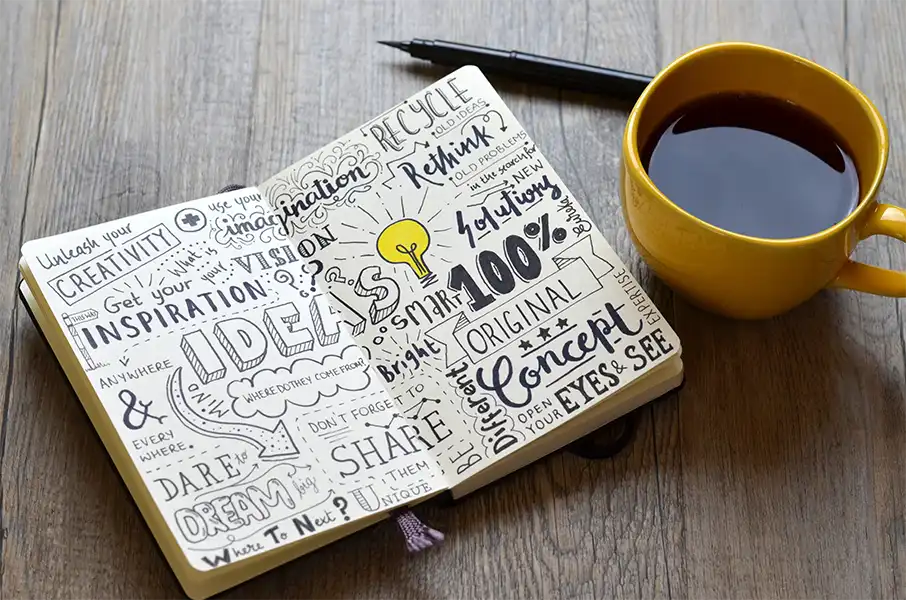 Unleash your
CREATIVITY
& use your
imagination
What is
your
VISION
?
Get your
THIS WAY
INSPIRATION
IDEAS
ANYWHERE
&
EVERY
WHERE.
MIND
WHERE DO THEY COME FROM?
DON'T FORGET TO
SHARE
THEM
DARE to
DREAM big
UNIQUE
Where To Next?
RECYCLE
OLD IDEAS
Rethink
OLD PROBLEMS
in the search for
NEW
Solutions
SMART
100%
ORIGINAL
Bright
Concept
EXPERTISE
BE
Different
OPEN
YOUR
EYES & SEE